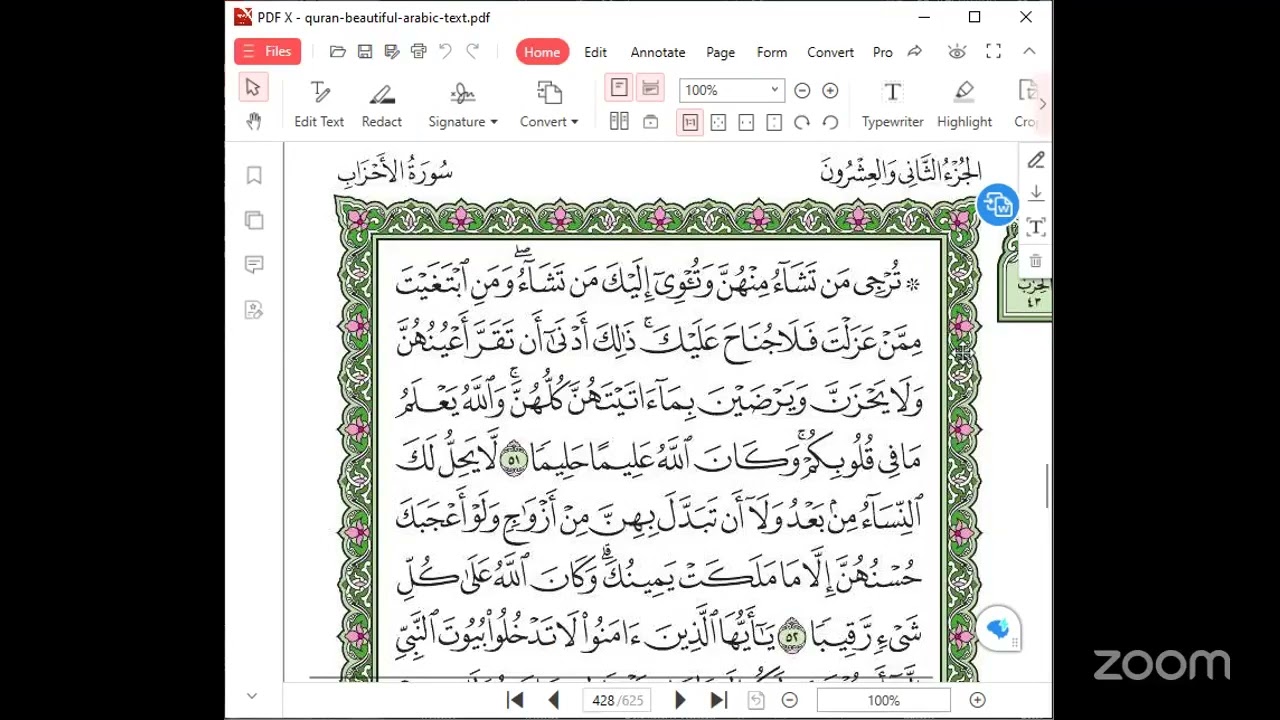 PDF X - quran-beautiful-arabic-text.pdf
Files
Home
Edit
Annotate
Page
Form
Convert
Pro
100%
Edit Text
Redact
Signature
Convert
Typewriter
Highlight
Cro
سُورَةُ الأَحْزَابِ
الجُزْءُ الثَّانِي وَالعِشْرُونَ
الحِزْب
٤٣
۞ تُرْجِى مَن تَشَآءُ مِنْهُنَّ وَتُـْٔوِىٓ إِلَيْكَ مَن تَشَآءُۖ وَمَنِ ٱبْتَغَيْتَ
مِمَّنْ عَزَلْتَ فَلَا جُنَاحَ عَلَيْكَۚ ذَٰلِكَ أَدْنَىٰٓ أَن تَقَرَّ أَعْيُنُهُنَّ
وَلَا يَحْزَنَّ وَيَرْضَيْنَ بِمَآ ءَاتَيْتَهُنَّ كُلُّهُنَّۚ وَٱللَّهُ يَعْلَمُ
مَا فِى قُلُوبِكُمْۚ وَكَانَ ٱللَّهُ عَلِيمًا حَلِيمًا ٥١ لَّا يَحِلُّ لَكَ
ٱلنِّسَآءُ مِنۢ بَعْدُ وَلَآ أَن تَبَدَّلَ بِهِنَّ مِنْ أَزْوَٰجٍ وَلَوْ أَعْجَبَكَ
حُسْنُهُنَّ إِلَّا مَا مَلَكَتْ يَمِينُكَۗ وَكَانَ ٱللَّهُ عَلَىٰ كُلِّ
شَىْءٍ رَّقِيبًا ٥٢ يَـٰٓأَيُّهَا ٱلَّذِينَ ءَامَنُوا۟ لَا تَدْخُلُوا۟ بُيُوتَ ٱلنَّبِىِّ
428/625
100%
zoom